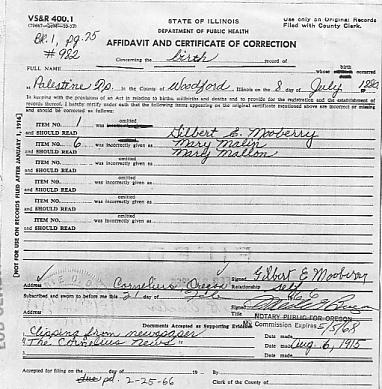 VS&R 400.1
STATE OF ILLINOIS
DEPARTMENT OF PUBLIC HEALTH
Use only on Original Records
Filed with County Clerk.
BK 1, pg. 75
# 982
AFFIDAVIT AND CERTIFICATE OF CORRECTION
Concerning the birth record of
FULL NAME
birth
whose occurred
Palestine Tp. in the County of Woodford, Illinois on the 8 day of July 1880
In keeping with the provisions of an Act in relation to births, stillbirths and deaths and to provide for the registration and the establishment of
records thereof, I hereby certify under oath that the following items appearing on the original certificate mentioned above are incorrect or missing
and should be corrected as follows:
[NOT FOR USE ON RECORDS FILED AFTER JANUARY 1, 1916]
omitted
ITEM NO. 1 was
and SHOULD READ Gilbert E. Mooberry
ITEM NO. 6 was incorrectly given as Mary Malin
and SHOULD READ Mary Mallon
omitted
ITEM NO. was incorrectly given as
and SHOULD READ
omitted
ITEM NO. was incorrectly given as
and SHOULD READ
omitted
ITEM NO. was incorrectly given as
and SHOULD READ
Signed Gilbert E Mooberry
Address Cornelius Oregon Relationship self
Subscribed and sworn to before me this 21 day of
Signed
Address Title NOTARY PUBLIC FOR OREGON
My Commission Expires 5/5/68
Documents Accepted as Supporting Evidence
Clipping from newspaper Date made
"The Cornelius News" Date made Aug 6, 1915
Date made
Accepted for filing on the day of 19 By
pd. 2-25-66 Clerk of the County of